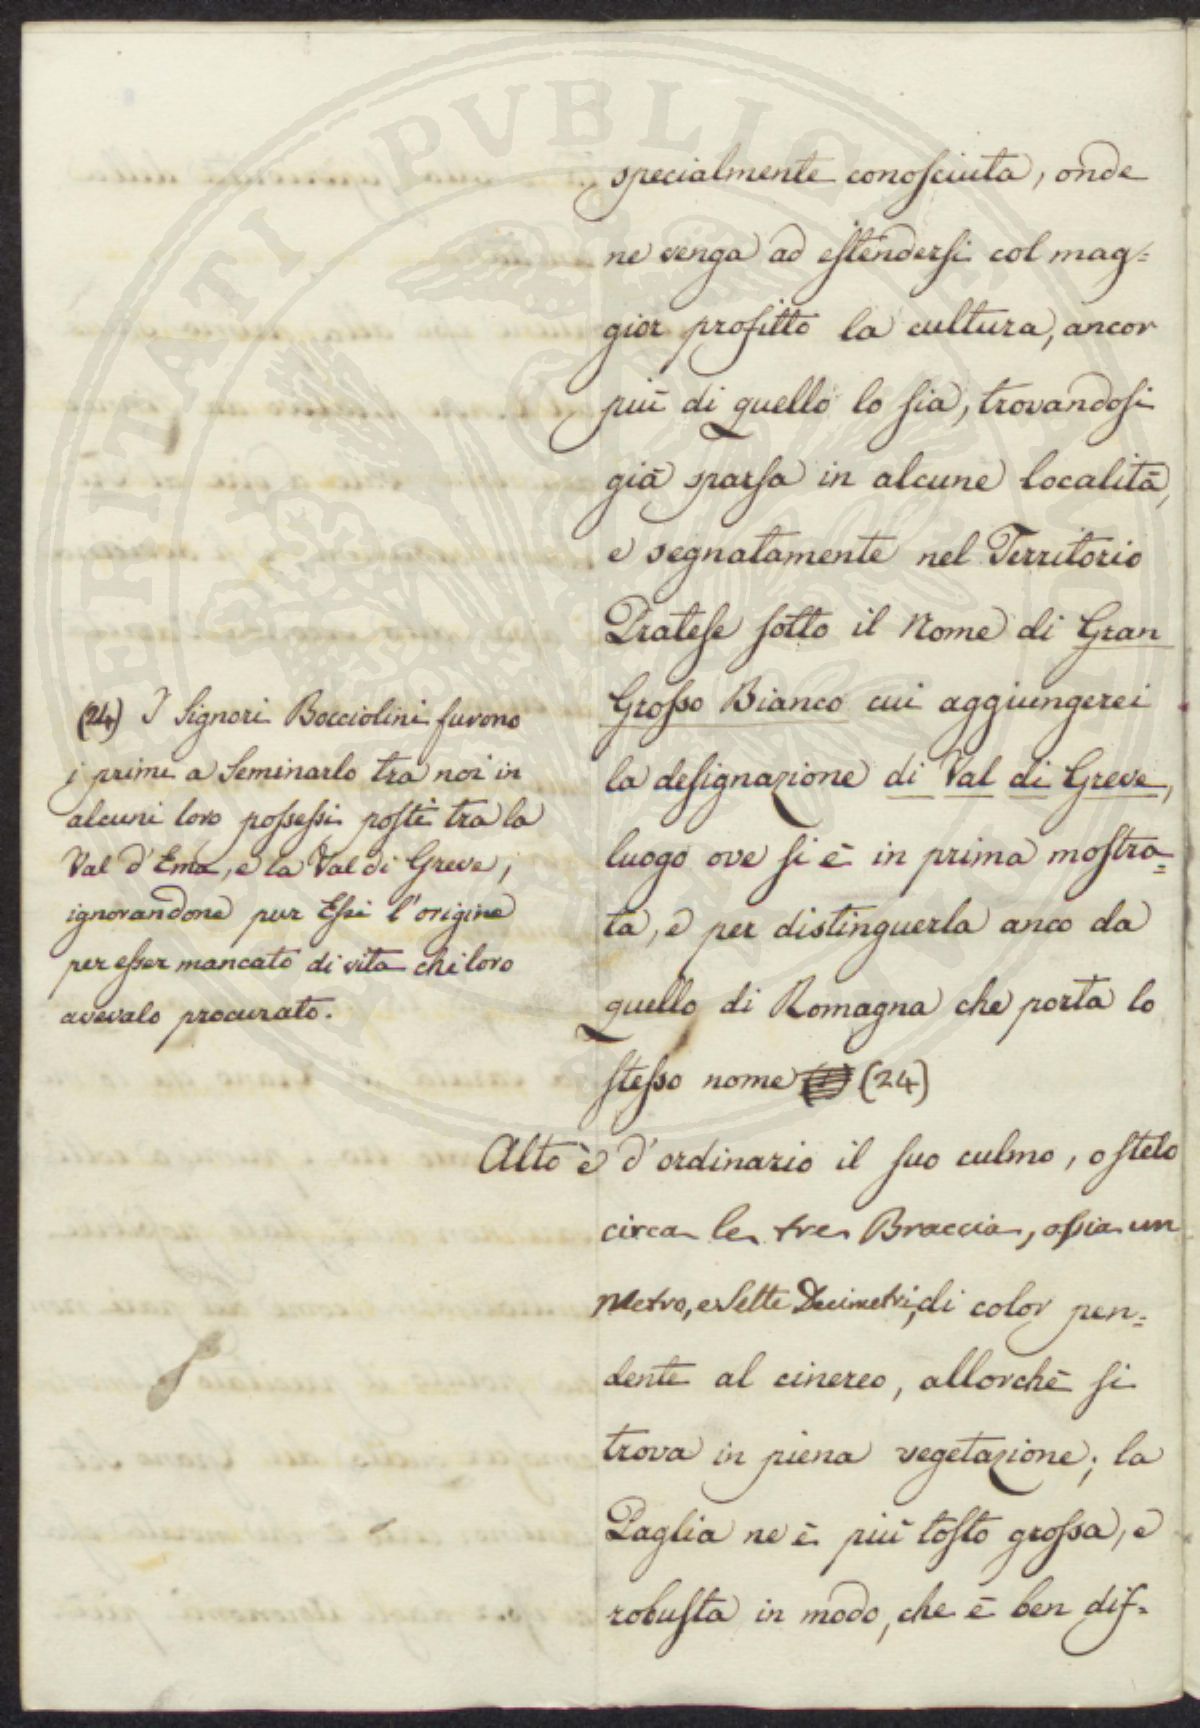 specialmente conosciuta, onde
ne venga ad estendersi col mag=
gior profitto la cultura, ancor
più di quello lo sia, trovandosi
già sparsa in alcune località,
e segnatamente nel Territorio
Pratese sotto il Nome di Gran
Grosso Bianco cui aggiungerei
la designazione di Val di Greve,
luogo ove si è in prima mostra=
ta, e per distinguerla anco da
quello di Romagna che porta lo
stesso nome (24)
Alto è d'ordinario il suo culmo, o stelo
circa le tre Braccia, ossia un
Metro, e Sette Decimetri, di color pen=
dente al cinereo, allorchè si
trova in piena vegetazione; la
Paglia ne è più tosto grossa, e
robusta in modo, che è ben dif=
(24) I Signori Bocciolini furono
i primi a Seminarlo tra noi in
alcuni loro possessi posti tra la
Val d'Ema, e la Val di Greve,
ignorandone pur Essi l'origine
per esser mancato di vita chi loro
avevalo procurato.
VERITATI PVBLICAE